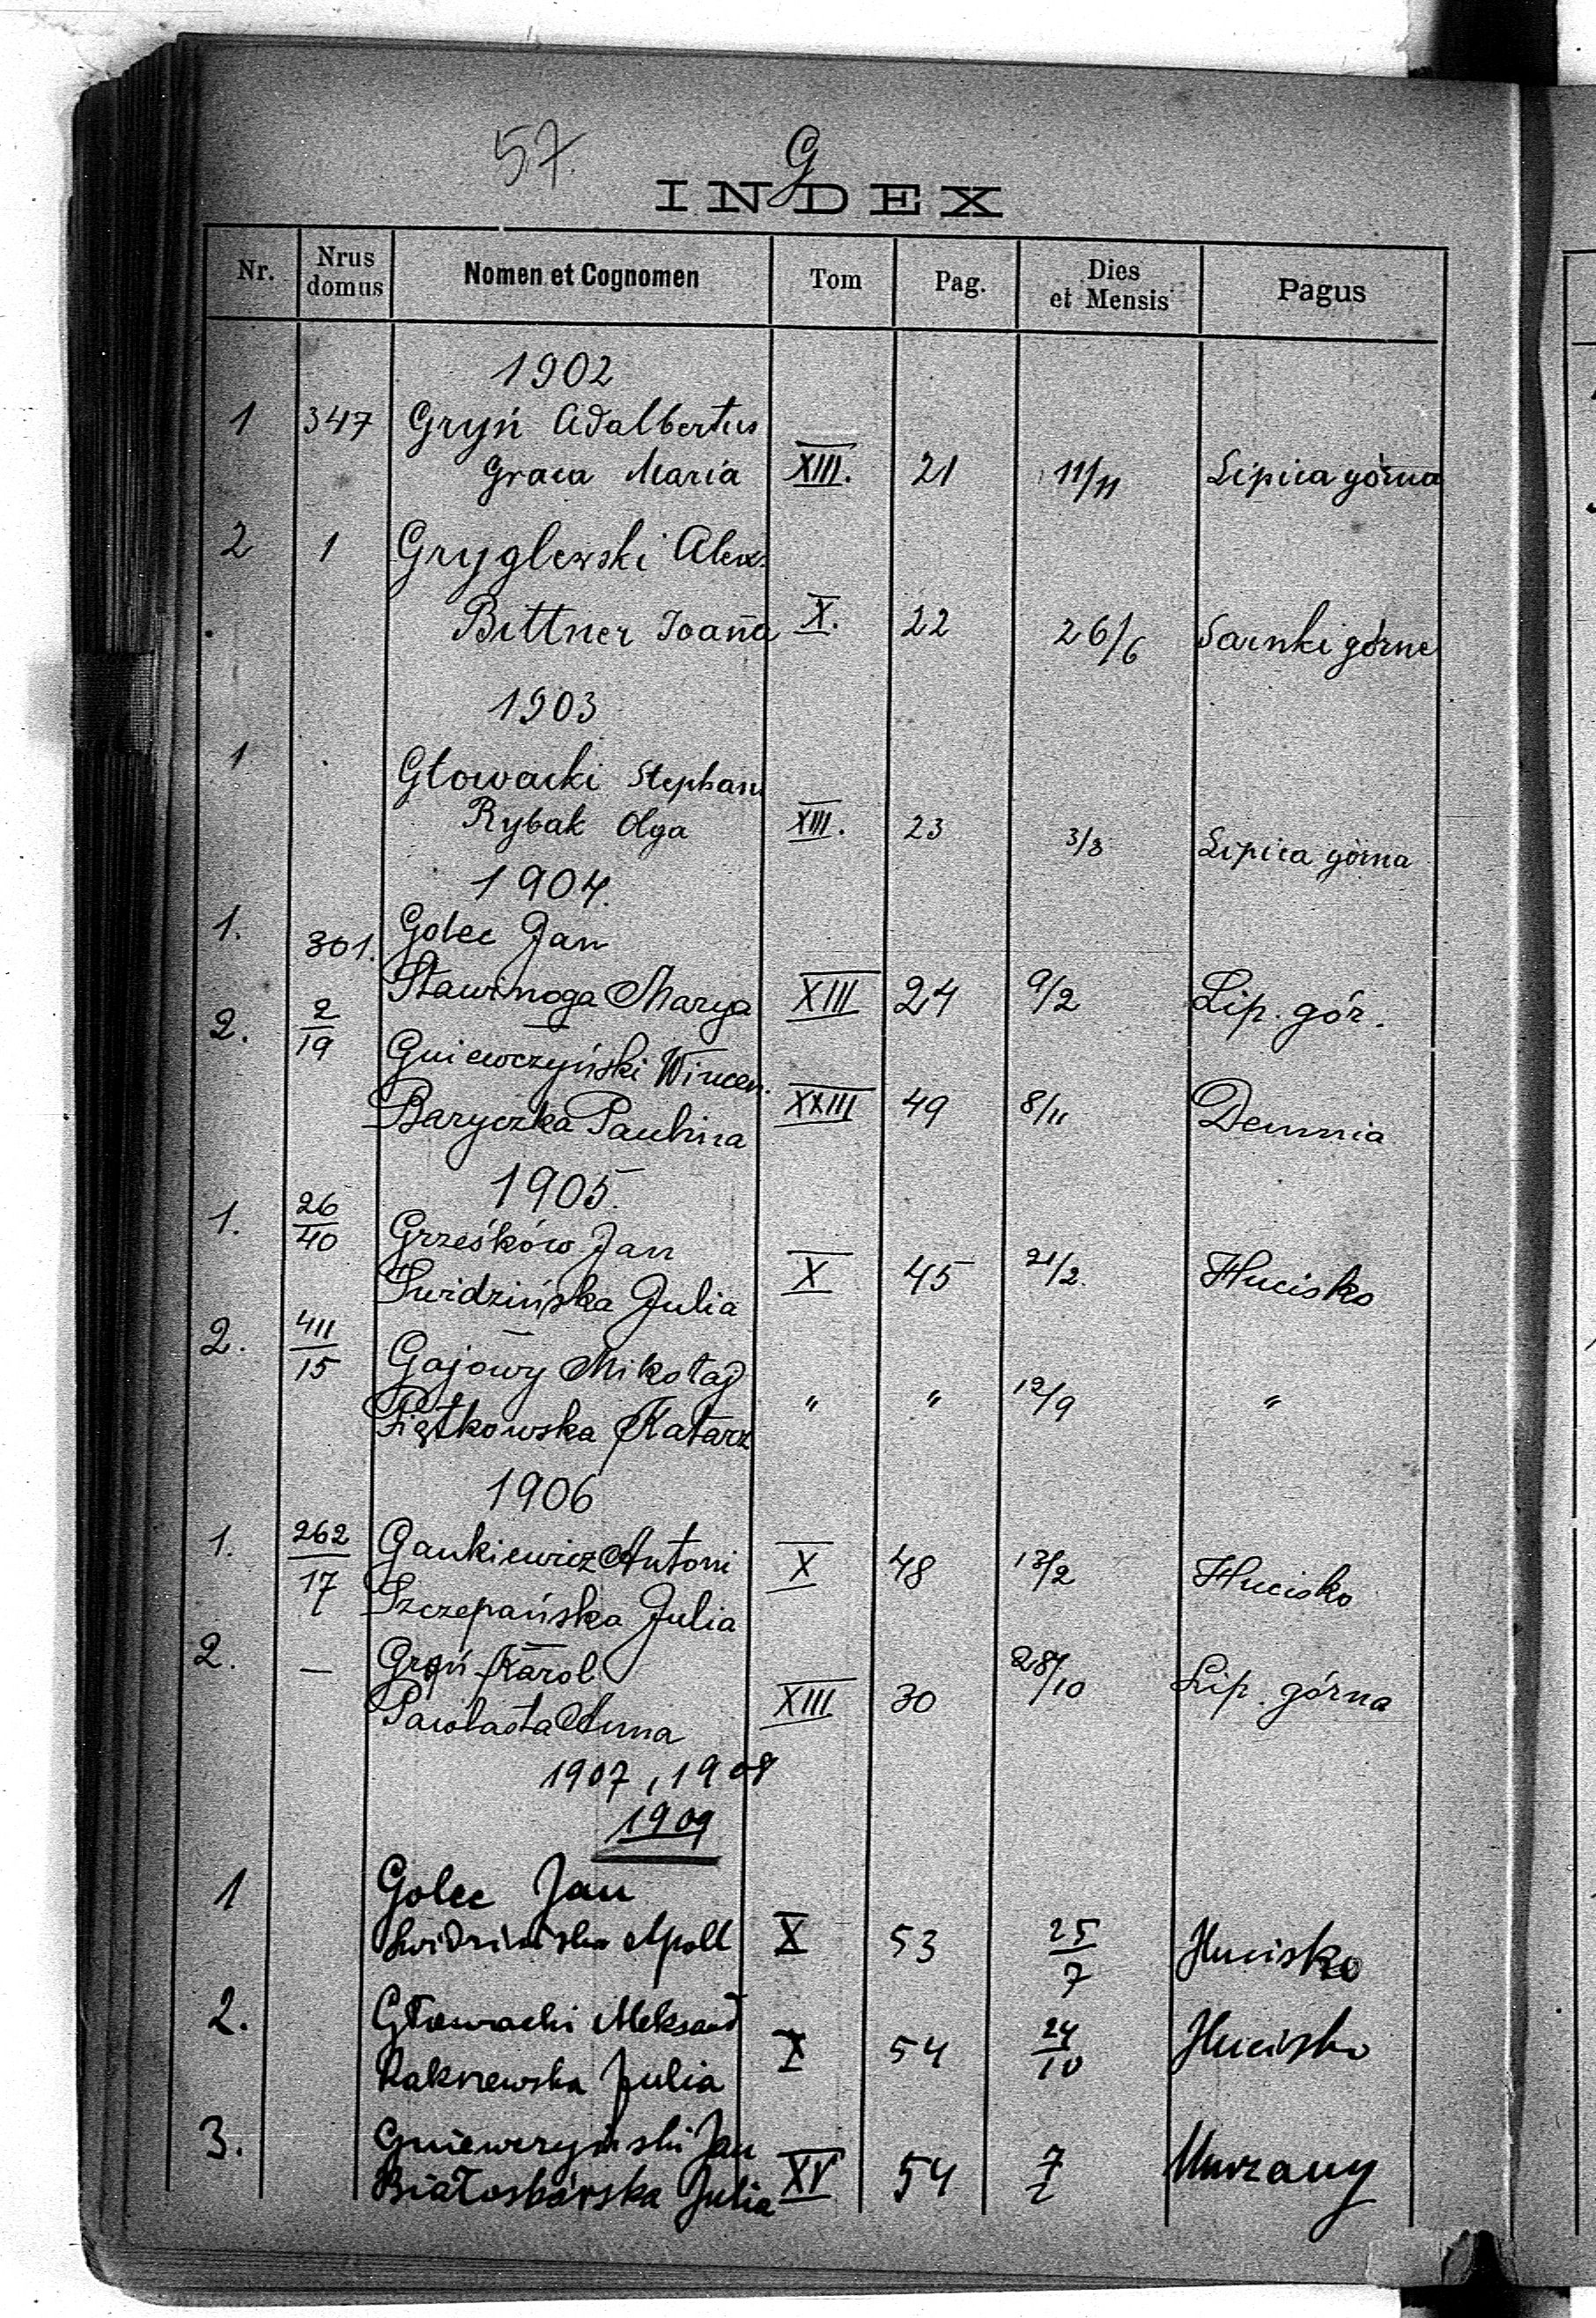 57. G
INDEX
Nr. Nrus domus Nomen et Cognomen Tom Pag. Dies et Mensis Pagus
1902
1 347 Gryń Adalbertus
Graca Maria XIII. 21 11/11 Lipica górna
2 1 Gryglewski Alex.
Bittner Joan̄a X. 22 26/6 Sarnki górne
1903
1 Głowacki Stephan
Rybak Olga XIII. 23 3/3 Lipica górna
1904.
1. 301. Golec Jan
Stawinoga Marya XIII 24 9/2 Lip. gór.
2. 2/19 Gniewczyński Wincen.
Baryczka Paulina XXIII 49 8/11 Demnia
1905.
1. 26/40 Grześków Jan
Swidzińska Julia X 45 21/2. Hucisko
2. 411/15 Gajowy Mikołaj
Piątkowska Katarz " " 12/9 "
1906
1. 262/17 Gankiewicz Antoni X 48 13/2 Hucisko
Szczepańska Julia
2. — Gryń Karol 28/10
Anna XIII 30 Lip. górna
1907, 1908
1909
1 Golec Jan
Swidzińska Apoll X 53 25/7 Hucisko
2. Głowacki Aleksand
Julia X 54 24/10 Hucisko
3. Gniewczyński Jan
Białoskórska Julia XV 54 7/2